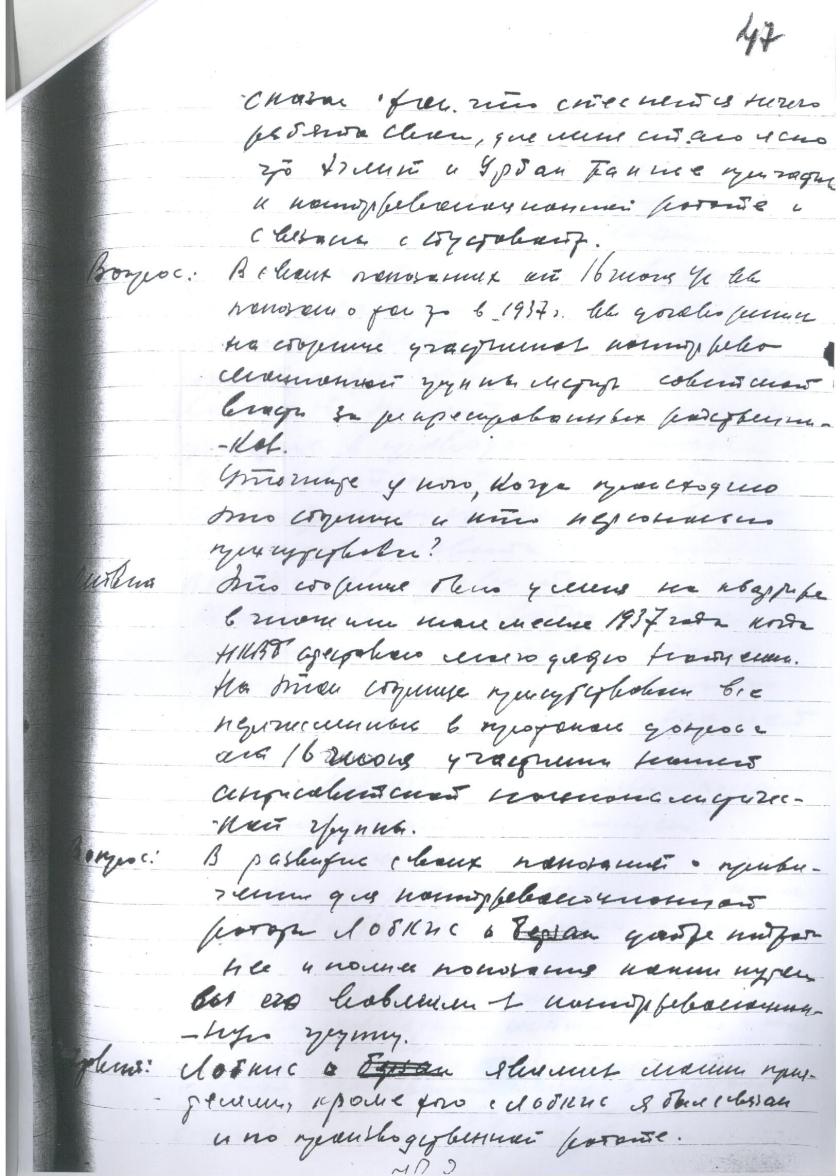 47
сказал что стесняется нечего
ребята свои, для меня стало ясно
что и Урбан также
к контрреволюционной работе и
связаны с
Вопрос: В своих показаниях от 16 июня Вы
показали о том что в 1937 г. Вы договорились
на сборище участников контррево
люционной группы мстить советской
власти за репресированных родственни-
-ков.
Уточните у кого, когда происходило
это сборище и кто персонально
присутствовал?
Ответ Это сборище было у меня на квартире
в июне или июле месяце 1937 года когда
НКВД арестовало моего дядю
На этом сборище присутствовали все
перечисленные в протоколе допроса
от 16 июня участники нашей
антисоветской националистичес-
-кой группы.
Вопрос: В развитие своих показаний о привле-
чении для контрреволюционной
работы Лобкис и дайте
нее и полные показания каким путем
вы его вовлекли в контрреволюцион-
-ную группу.
Ответ: Лобкис и являлись моими прия-
телями, кроме того с Лобкис я был связан
и по производственной работе.